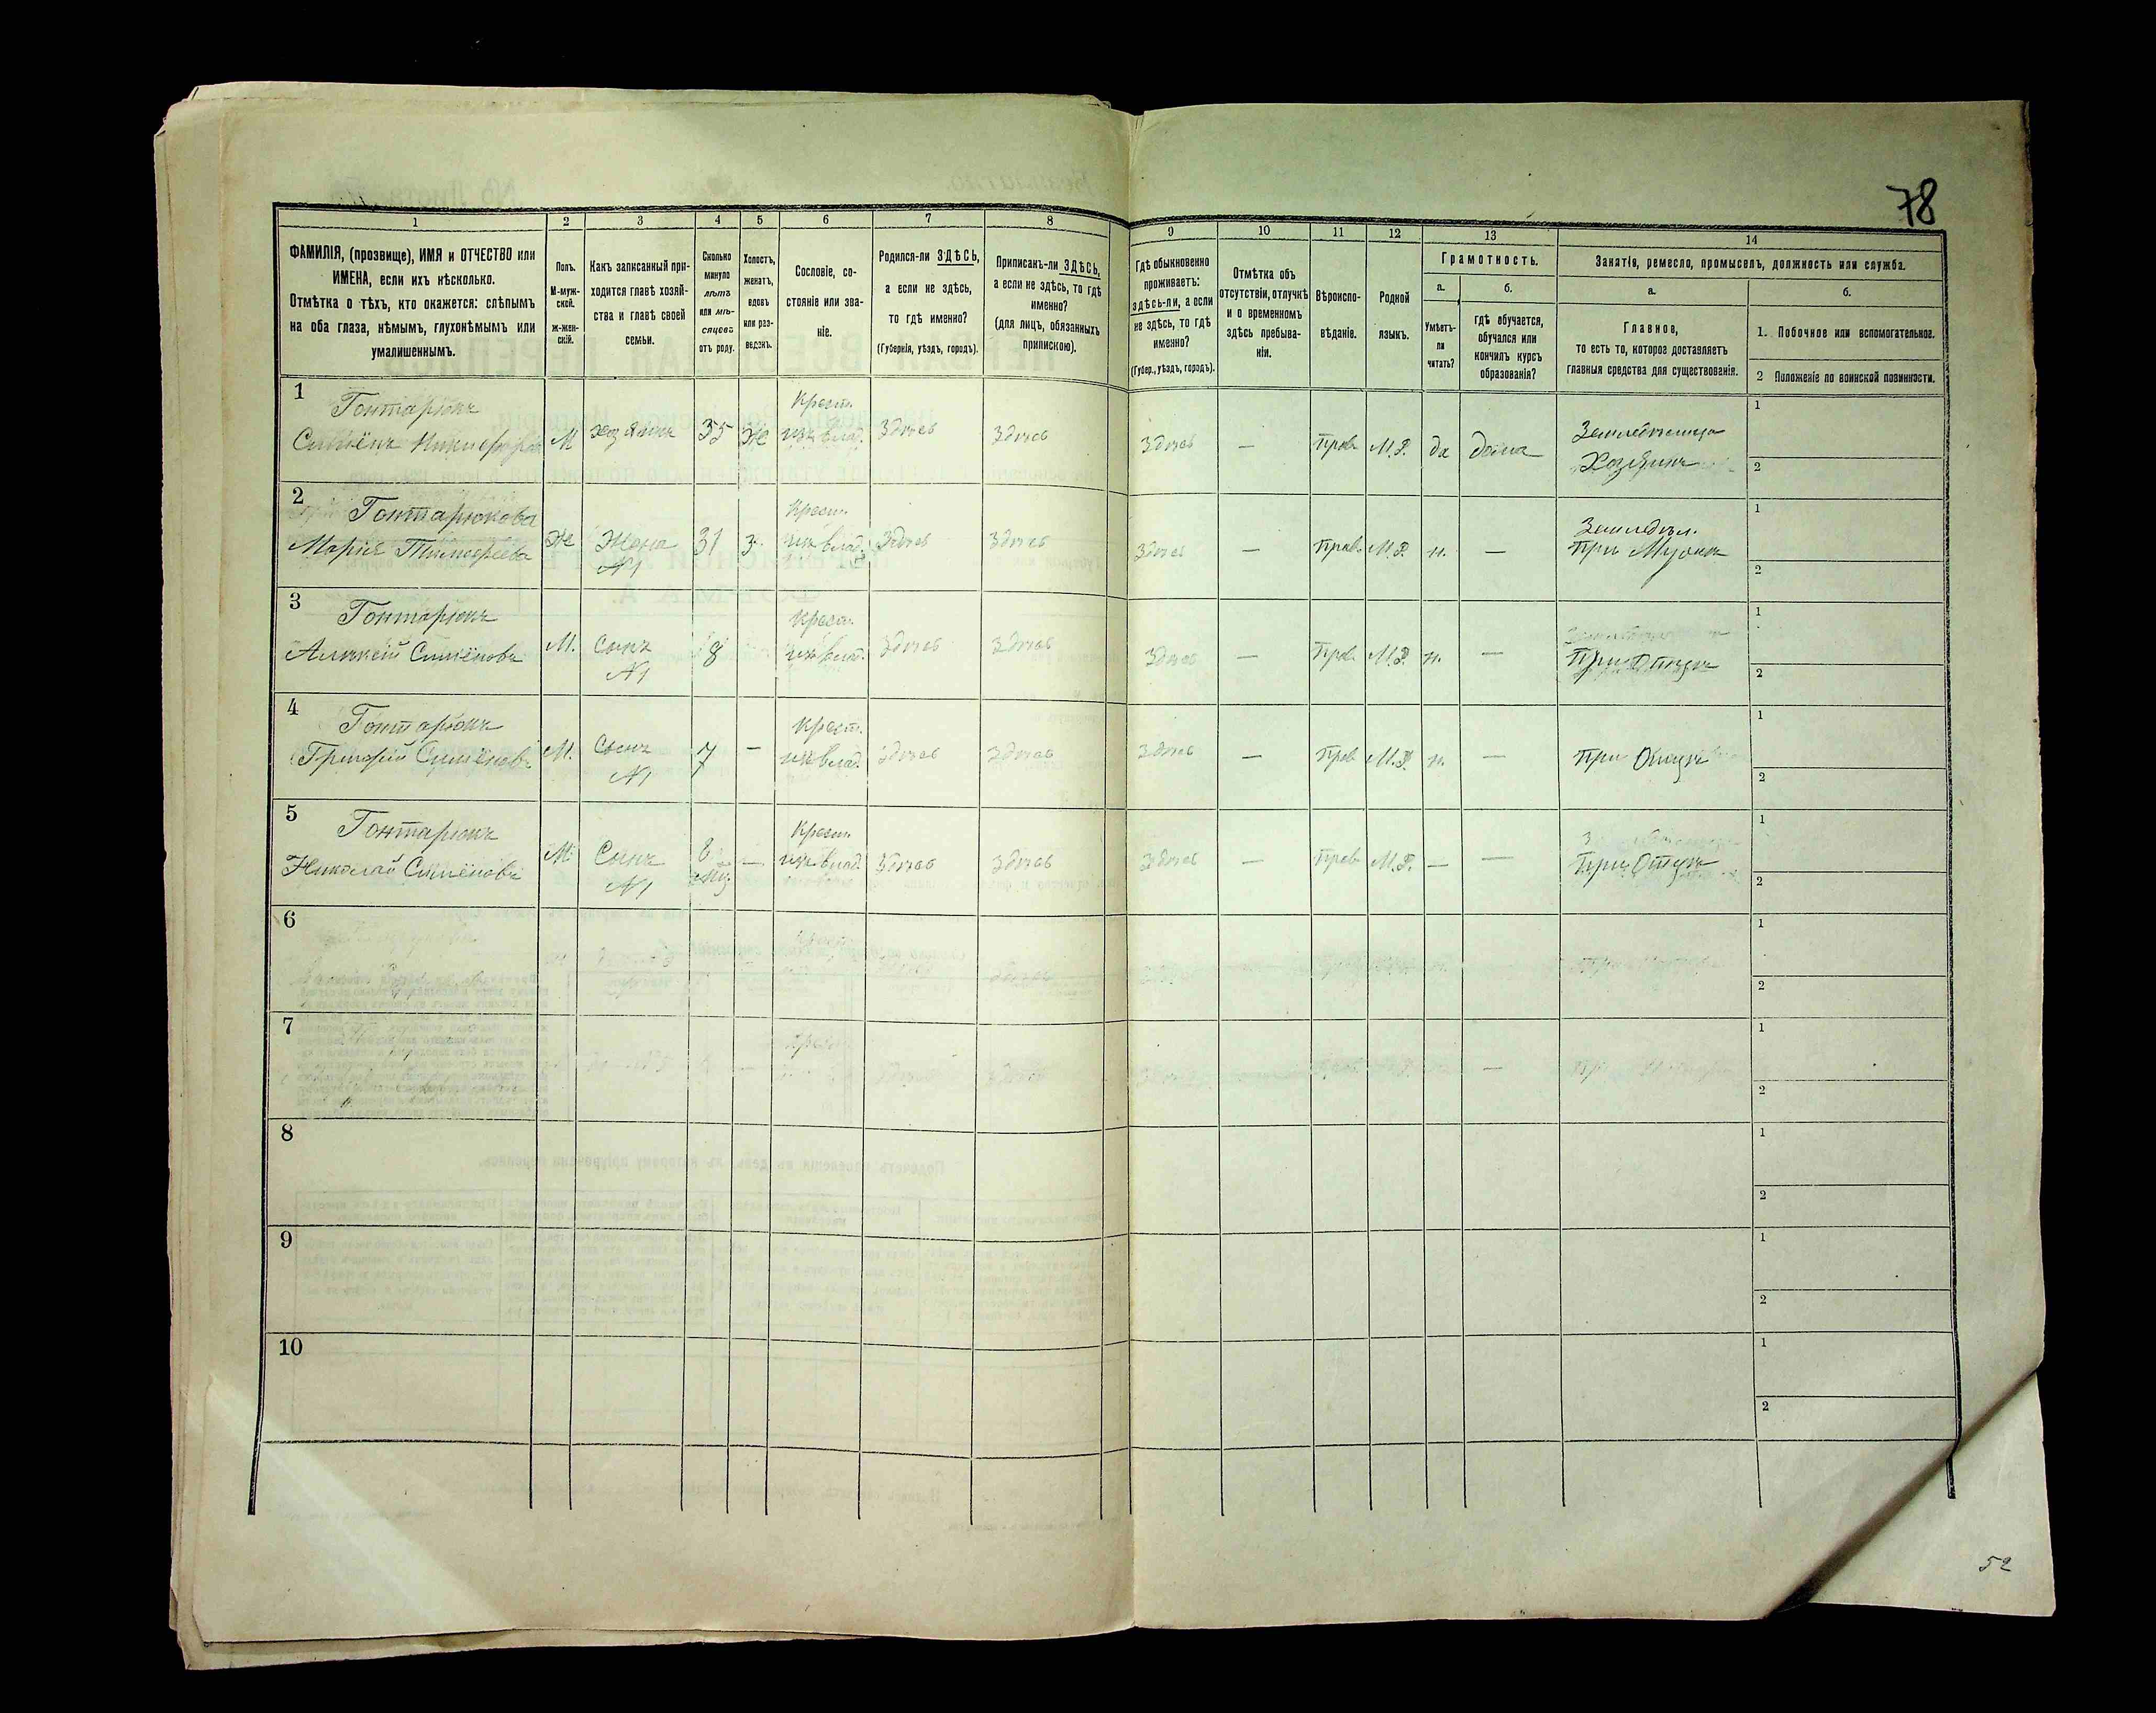 78
1 2 3 4 5 6 7 8 9 10 11 12 13 14
ФАМИЛІЯ, (прозвище), ИМЯ и ОТЧЕСТВО или
ИМЕНА, если ихъ нѣсколько.
Отмѣтка о тѣхъ, кто окажется: слѣпымъ
на оба глаза, нѣмымъ, глухонѣмымъ или
умалишеннымъ.
Полъ.
М-муж-
ской.
ж-жен-
скій.
Какъ записанный при-
ходится главѣ хозяй-
ства и главѣ своей
семьи.
Сколько
минуло
лѣтъ
или мѣ-
сяцевъ
отъ роду.
Холостъ,
женатъ,
вдовъ
или раз-
веденъ.
Сословіе, со-
стояніе или зва-
ніе.
Родился-ли ЗДѢСЬ,
а если не здѣсь,
то гдѣ именно?
(Губернія, уѣздъ, городъ).
Приписанъ-ли ЗДѢСЬ,
а если не здѣсь, то гдѣ
именно?
(для лицъ, обязанныхъ
припискою).
Гдѣ обыкновенно
проживаетъ:
здѣсь-ли, а если
не здѣсь, то гдѣ
именно?
(Губер., уѣздъ, городъ).
Отмѣтка объ
отсутствіи, отлучкѣ
и о временномъ
здѣсь пребыва-
ніи.
Вѣроиспо-
вѣданіе.
Родной
языкъ.
Грамотность.
а.
Умѣетъ-
ли
читать?
б.
гдѣ обучается,
обучался или
кончилъ курсъ
образованія?
Занятія, ремесло, промыселъ, должность или служба.
а.
Главное,
то есть то, которое доставляетъ
главныя средства для существованія.
б.
1. Побочное или вспомогательное.
2 Положеніе по воинской повинности.
1
Гонтарюкъ
Симёнъ Никифоров
М
хозяинъ
35
Ж
Крест.
изъ влад.
Здѣсь
Здѣсь
Здѣсь
—
Прав.
М.Р.
да
дома
Хозяинъ
1
2
2
Гонтарюкова
Мария Тимофеева
Ж
Жена
N1
31
з.
Крест.
изъ влад.
Здѣсь
Здѣсь
Здѣсь
—
Прав.
М.Р.
н.
—
Земледѣл.
При Мужѣ
1
2
3
Гонтарюкъ
Алексѣй Симёновъ
М.
Сынъ
N1
8
Крест.
изъ влад.
Здѣсь
Здѣсь
Здѣсь
—
Прав.
М.Р.
н.
—
При Отцѣ
1
2
4
Гонтарюкъ
Григорій Симёновъ
М.
Сынъ
N1
7
—
Крест.
изъ влад.
Здѣсь
Здѣсь
Здѣсь
—
Прав
М.Р.
н.
—
При Отцѣ
1
2
5
Гонтарюкъ
Николай Симёновъ
М.
Сынъ
N1
—
Крест.
изъ влад.
Здѣсь
Здѣсь
Здѣсь
—
Прав
М.Р.
—
—
При Отцѣ
1
2
6
1
2
7
1
2
8
1
2
9
1
2
10
1
2
52